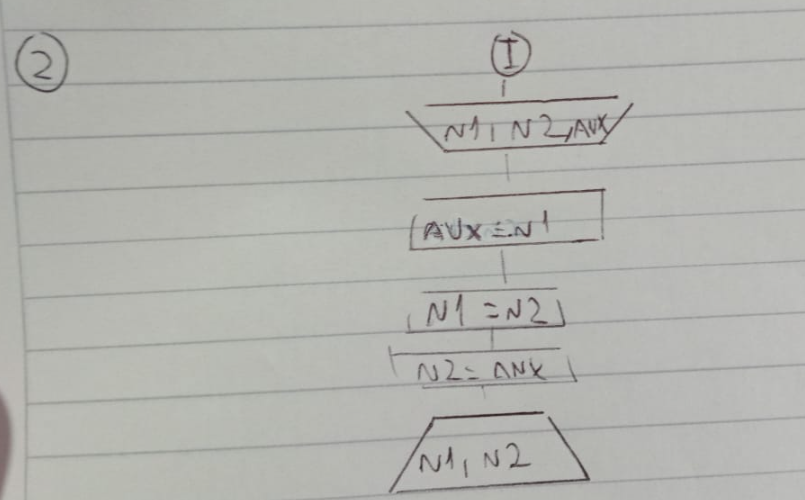 2
I
N1, N2, AUX
AUX = N1
N1 = N2
N2 = AUX
N1, N2